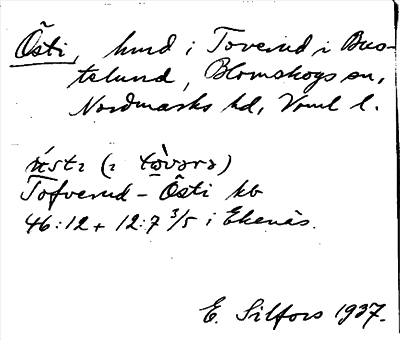 Östi, hmd i Toverud i Bus-
telund, Blomskogs sn,
Nordmarks hd, Vrml l.
ɯ́stɩ (ɩ tɷ̀vərə)
Tofverud – Östi kb
46:12 + 12:7 3/5 i Ekenäs.
E. Silfors 1937.